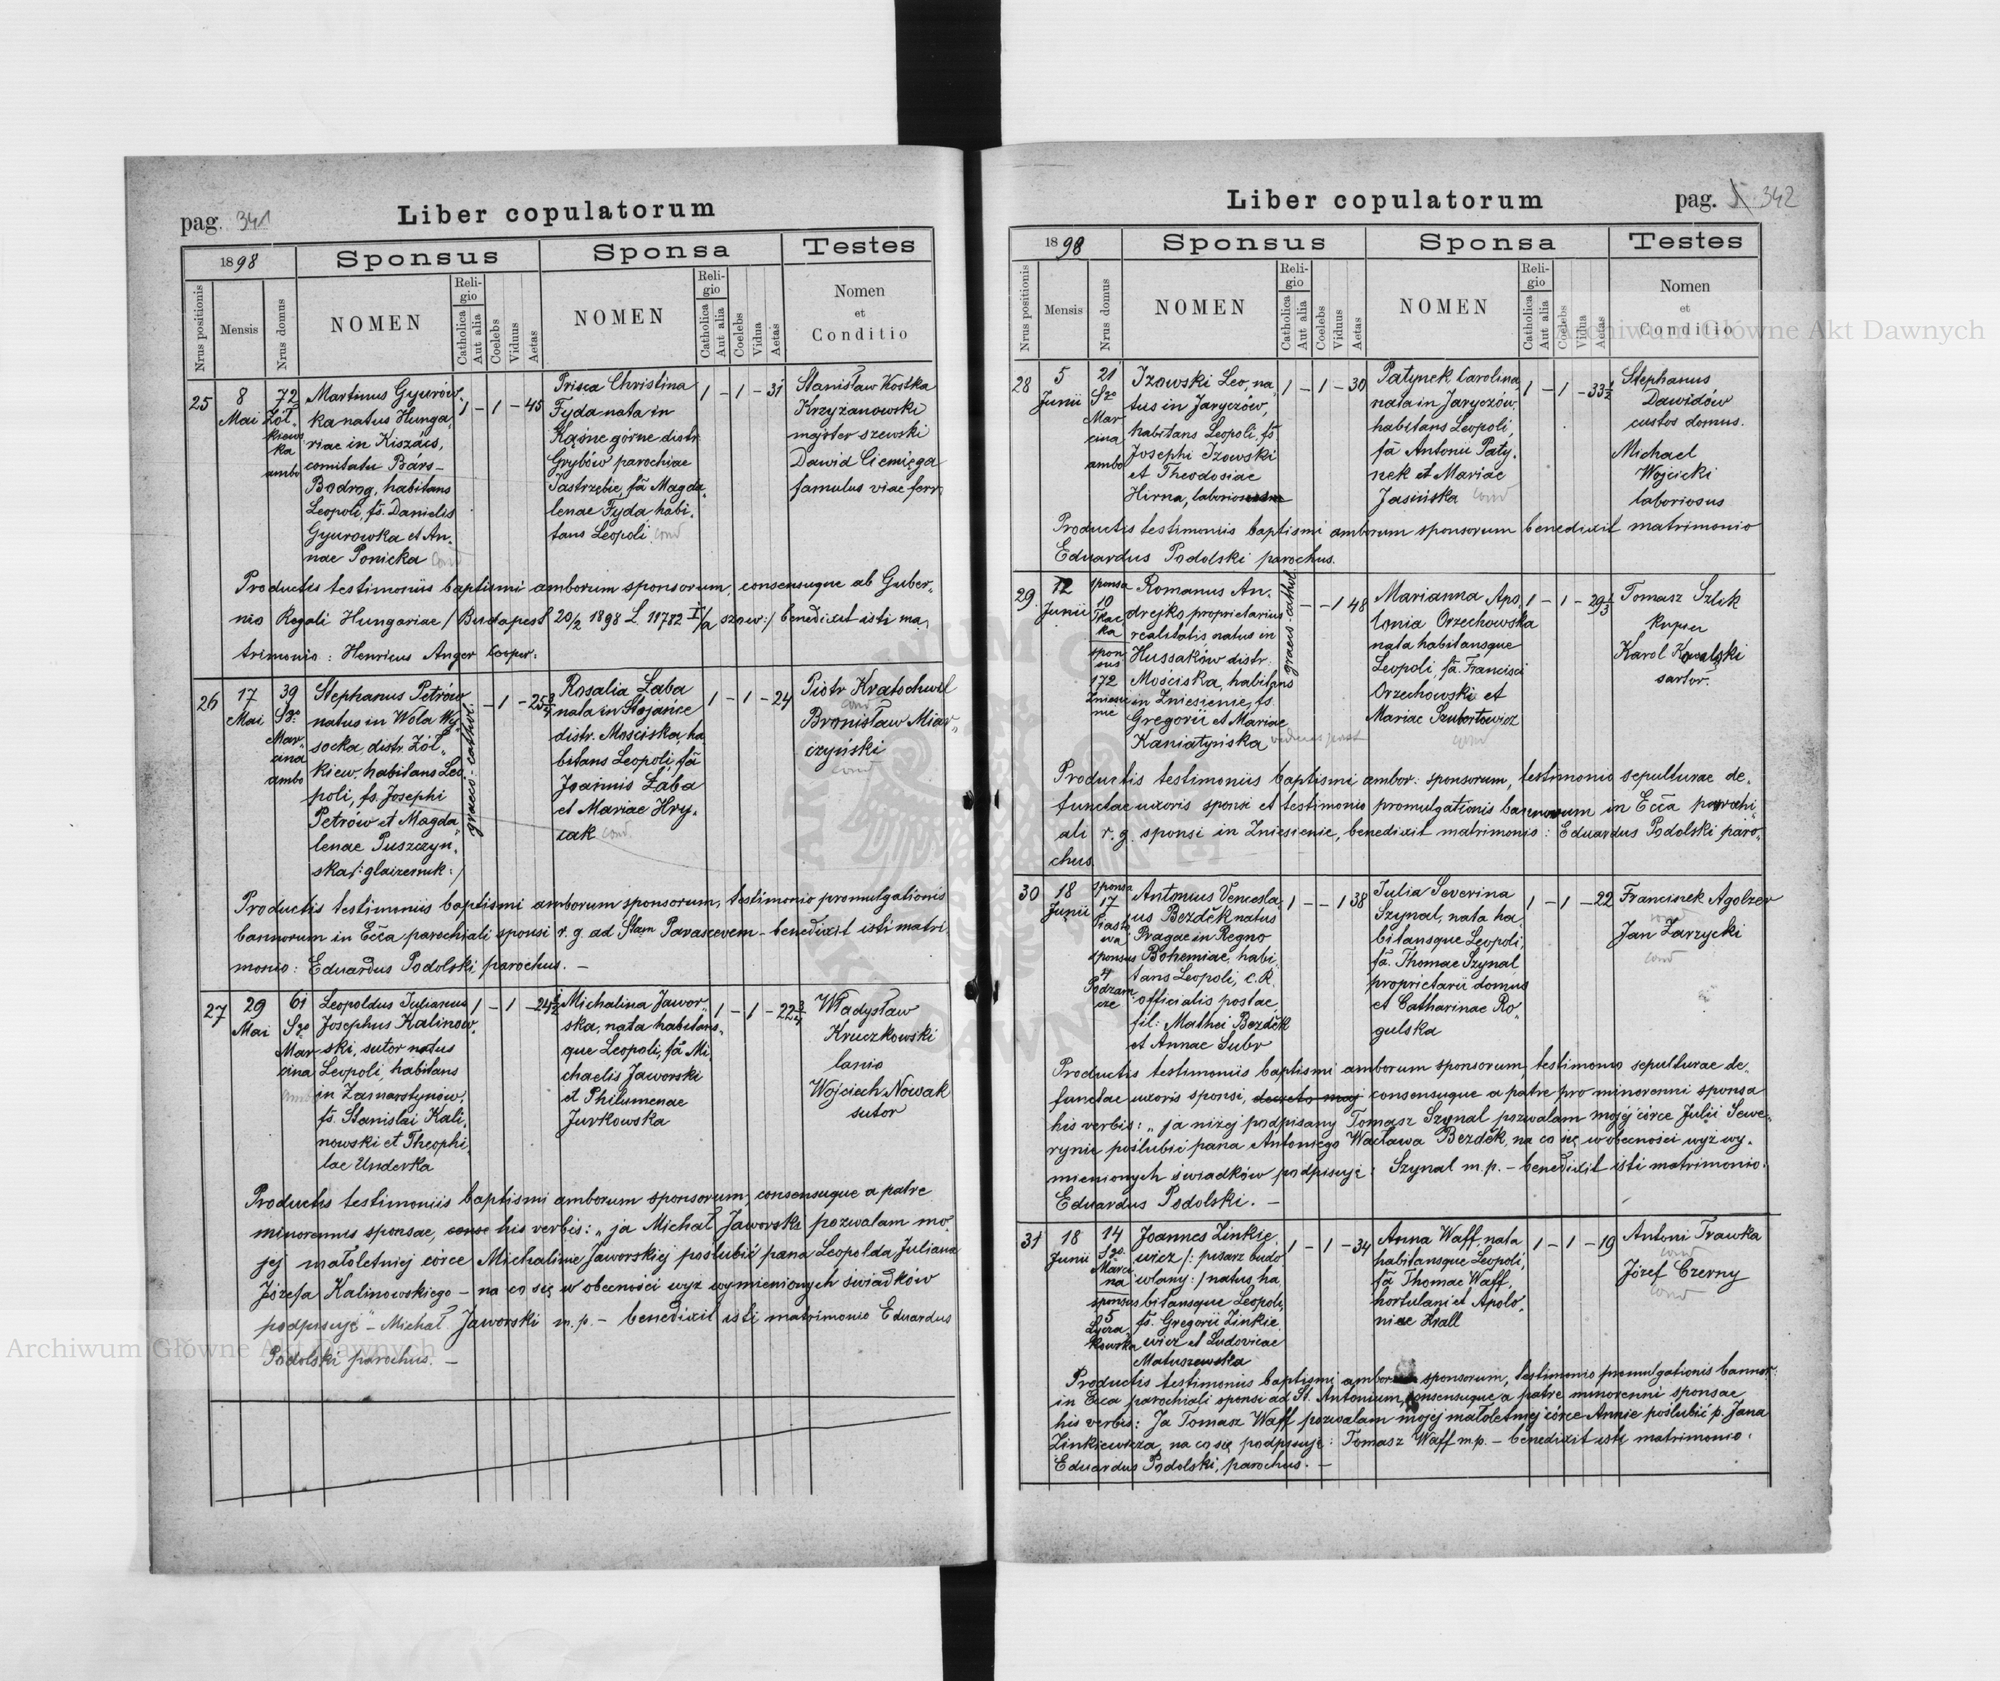 pag. 341
Liber copulatorum
1898
Sponsus
Sponsa
Testes
Nrus positionis
Mensis
Nrus domus
NOMEN
Religio
Catholica
Aut alia
Coelebs
Viduus
Aetas
NOMEN
Religio
Catholica
Aut alia
Coelebs
Vidua
Aetas
Nomen
et
Conditio
25
8
Mai
72
Żół-
kiews
ka
ambo
Martinus Gyurów-
ka natus Hunga-
riae in Kiszács,
comitatu Bárs-
Bodrog, habitans
Leopoli, fs. Danielis
Gyurowka et An-
nae Ponicka
1 - 1 - 45
Prisca Christina
Fyda nata in
Kąśne górne distr.
Grybów parochiae
Jastrzębie, fa Magda-
lenae Fyda habi-
tans Leopoli
1 - 1 - 31
Stanisław Kostka
Krzyżanowski
majster szewski
Dawid Ciemięga
famulus viae ferr.
Productis testimoniis baptismi amborum sponsorum, consensuque ab Guber-
nio Regali Hungariae /: Budapest 20/2 1898 L. 11782 I/a szow :/ benedixit isti ma-
trimonio: Henricus Anger Cooper.
26
17
Mai
39
Sgo
Mar-
cina
ambo
Stephanus Petrów
natus in Wola Wy-
socka distr. Żół-
kiew, habitans Leo-
poli, fs. Josephi
Petrów et Magda-
lenae Puszczyń-
ska /: glaizernik :/
graeco-cathol.
- 1 - 25 3/4
Rosalia Łaba
nata in Stojańce
distr. Mościska, ha-
bitans Leopoli, fa
Joannis Łaba
et Mariae Hry-
cak
1 - 1 - 24
Piotr Kratochwil
Bronisław Miar-
czyński
Productis testimoniis baptismi amborum sponsorum, testimonio promulgationis
bannorum in Ecca parochiali sponsi r. g. ad Stam Parascevem - benedixit isti matri
monio: Eduardus Podolski parochus. -
27
29
Mai
61
Sgo
Mar
cina
Leopoldus Julianus
Josephus Kalinow-
ski, sutor natus
Leopoli, habitans
in Zamarstynów,
fs. Stanislai Kali-
nowski et Theophi-
lae Underka
1 - 1 - 24
Michalina Jawor-
ska, nata habitans-
que Leopoli, fa Mi-
chaelis Jaworski
et Philumenae
Jurkowska
1 - 1 - 22 3/4
Władysław
Kruczkowski
lanio
Wojciech Nowak
sutor
Productis testimoniis baptismi amborum sponsorum, consensuque a patre
minorennis sponsae, his verbis: „ja Michał Jaworski pozwalam mo-
jej małoletniej córce Michalinie Jaworskiej poślubić pana Leopolda Juliana
Józefa Kalinowskiego - na co się w obecności wyż wymienionych świadków
podpisuję" - Michał Jaworski m. p. - benedixit isti matrimonio Eduardus
Podolski parochus. -
Liber copulatorum
pag. 342
1898
Sponsus
Sponsa
Testes
Nrus positionis
Mensis
Nrus domus
NOMEN
Religio
Catholica
Aut alia
Coelebs
Viduus
Aetas
NOMEN
Religio
Catholica
Aut alia
Coelebs
Vidua
Aetas
Nomen
et
Conditio
28
5
Junii
21
Sgo
Mar
cina
ambo
Izowski Leo, na-
tus in Jaryczów,
habitans Leopoli, fs.
Josephi Izowski
et Theodosiae
Hirna,
1 - 1 - 30
Patynek Carolina,
nata in Jaryczów,
habitans Leopoli,
fa Antonii Paty-
nek et Mariae
Jasińska
1 - 1 - 33 1/2
Stephanus
Dawidów
custos domus.
Michael
Wojcicki
laboriosus
Productis testimoniis baptismi amborum sponsorum benedixit matrimonio
Eduardus Podolski parochus.
29.
12
Junii
sponsa
10
Tkac
ka
spon
sus
172
Zniesie
nie
Romanus An-
drejko, proprietarius
realitatis natus in
Hussaków distr.
Mościska, habitans
in Zniesienie, fs.
Gregorii et Mariae
Kaniatyńska
graeco-cathol.
- - 1 48
Marianna Apo-
lonia Orzechowska
nata habitansque
Leopoli, fa. Francisci
Orzechowski et
Mariae Szubertowicz
1 - 1 - 29 1/3
Tomasz Szlik
kupiec
Karol Kowalski
sartor.
Productis testimoniis baptismi ambor: sponsorum, testimonio sepulturae de-
functae uxoris sponsi et testimonio promulgationis bannorum in Ecca parochi-
ali r. g. sponsi in Zniesienie, benedixit matrimonio: Eduardus Podolski paro-
chus.
30
18
Junii
sponsa
17
Piasto
wa
sponsus
4
Podzam
cze
Antonius Vencesla-
us Bezděk natus
Pragae in Regno
Bohemiae, habi-
tans Leopoli, c. R.
officialis postae,
fil: Mathei Bezděk
et Annae Subr
1 - - 1 38
Julia Severina
Szynal, nata ha-
bitansque Leopoli,
fa. Thomae Szynal
proprietarii domus
et Catharinae Ro-
gulska
1 - 1 - 22
Franciszek Agolzer
Jan Zarzycki
Productis testimoniis baptismi amborum sponsorum, testimonio sepulturae de-
functae uxoris sponsi, consensuque a patre pro minorenni sponsa
his verbis: „ja niżej podpisany Tomasz Szynal pozwalam mojéj córce Julii Sewe-
rynie poślubić pana Antoniego Wacława Bezděk, na co się w obecności wyż wy-
mienionych świadków podpisuję: Szynal m.p. - benedixit isti matrimonio.
Eduardus Podolski. -
31
18
Junii
14
Sgo
Marci
na
sponsus
5
Łycza
kowska
Joannes Zinkie-
wicz /: pisarz budo
wlany :/ natus ha-
bitansque Leopoli,
fs. Gregorii Zinkie
wicz et Ludovicae
Matuszewska
1 - 1 - 34
Anna Waff, nata
habitansque Leopoli,
fa Thomae Waff,
hortulani et Apolo-
niae Krall
1 - 1 - 19
Antoni Trawka
Józef Czerny
Productis testimoniis baptismi amborum sponsorum, testimonio promulgationis bannor:
in Ecca parochiali sponsi ad St. Antonium, consensuque a patre minorenni sponsae
his verbis: Ja Tomasz Waff pozwalam mojej małoletniej córce Annie poślubić p. Jana
Zinkiewicza, na co się podpisuję: Tomasz Waff m.p. - benedixit isti matrimonio:
Eduardus Podolski, parochus. -
Archiwum Główne Akt Dawnych
Archiwum Główne Akt Dawnych